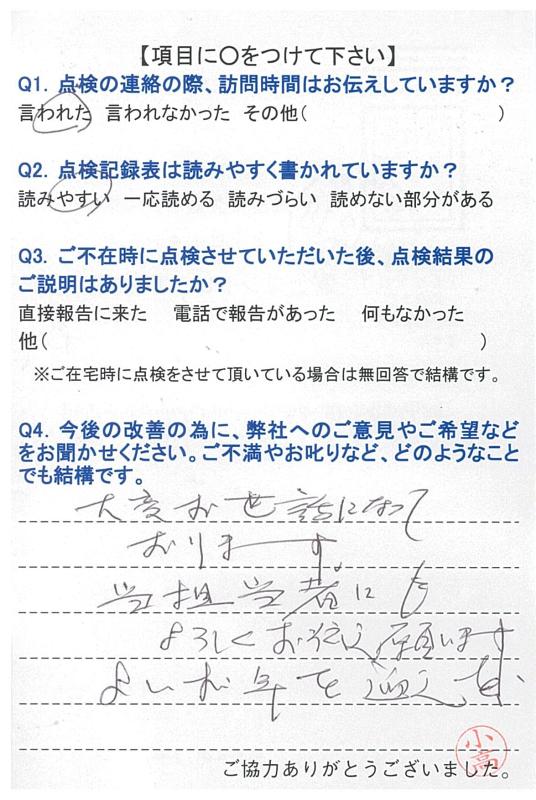 【項目に〇をつけて下さい】
Q1. 点検の連絡の際、訪問時間はお伝えしていますか？
言われた 言われなかった その他( )
Q2. 点検記録表は読みやすく書かれていますか？
読みやすい 一応読める 読みづらい 読めない部分がある
Q3. ご不在時に点検させていただいた後、点検結果の
ご説明はありましたか？
直接報告に来た 電話で報告があった 何もなかった
他( )
※ご在宅時に点検をさせて頂いている場合は無回答で結構です。
Q4. 今後の改善の為に、弊社へのご意見やご希望など
をお聞かせください。ご不満やお叱りなど、どのようなこと
でも結構です。
大変お世話になって
おります。
当担当者にも
よろしくお伝え願います
よいお年を迎え
小高
ご協力ありがとうございました。